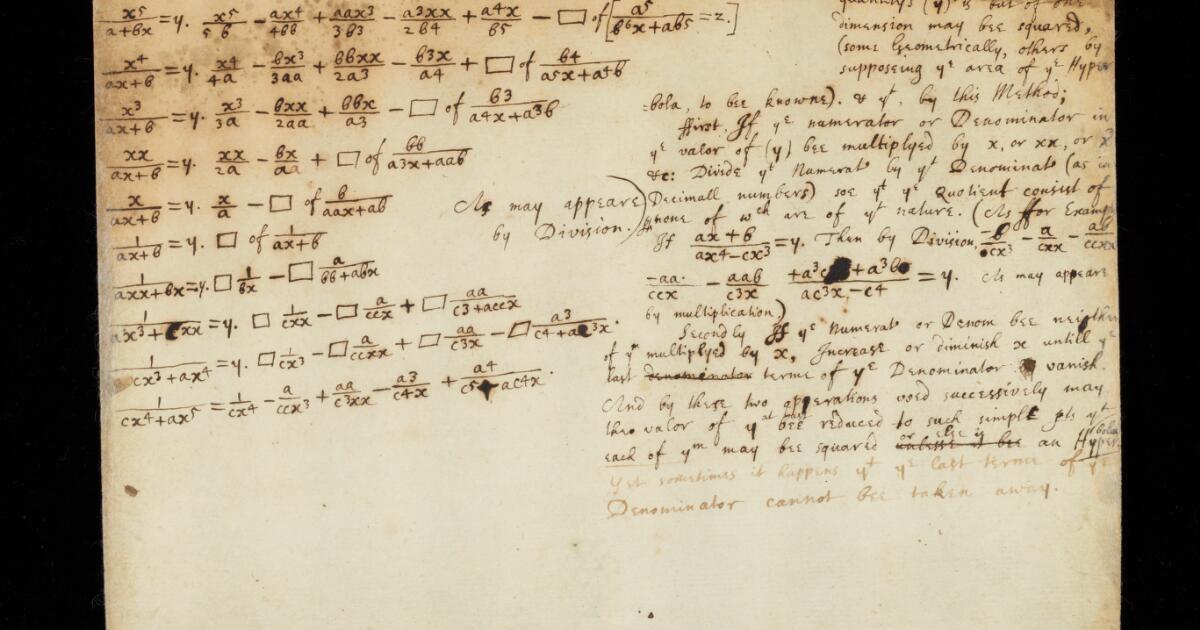 x5/(a+bx) = y. x5/5b − ax4/4bb + aax3/3b3 − a3xx/2b4 + a4x/b5 − □ of [a5/(b6x+ab5) = z.]
x4/(ax+b) = y. x4/4a − bx3/3aa + bbxx/2a3 − b3x/a4 + □ of b4/(a5x+a4b)
x3/(ax+b) = y. x3/3a − bxx/2aa + bbx/a3 − □ of b3/(a4x+a3b)
xx/(ax+b) = y. xx/2a − bx/aa + □ of bb/(a3x+aab)
x/(ax+b) = y. x/a − □ of b/(aax+ab)
1/(ax+b) = y. □ of 1/(ax+b)
1/(axx+bx) = y. □ 1/bx − □ a/(bb+abx)
1/(ax3+cxx) = y. □ 1/cxx − □ a/ccx + □ aa/(c3+accx)
1/(cx3+ax4) = y. □ 1/cx3 − □ a/ccxx + □ aa/c3x − □ a3/(c4+ac3x).
1/(cx4+ax5) = 1/cx4 − a/ccx3 + aa/c3xx − a3/c4x + a4/(c5+ac4x).
As may appeare
by Division.)
(y) is but of one
dimension may bee squared,
(some Geometrically, others by
supposeing ye area of ye Hyper
-bola, to bee knowne). & yt, by this Method;
ffirst, If ye numerator or Denominator in
ye valor of (y) bee multiplyed by x, or xx, or x3
&c: Divide ye Numerat by yt Denominat (as in
Decimall numbers) soe yt ye Quotient consist of
none of wch are of yt nature. (As ffor Examp
If (ax+b)/(ax4−cx3) = y. Then by Division, −b/cx3 − a/cxx − ab/ccxx
−aa/ccx − aab/c3x +a3c+a3b/(ac3x−c4) = y. As may appeare
by multiplication.)
Secondly If ye Numerat or Denom bee neither
of ym multiplyed by x, Increase or diminish x untill ye
last denominator terme of ye Denominator vanish.
And by these two operations used successively may
the valor of y bee reduced to such simple pts yt
each of ym may bee squared or else is unlesse it bee an Hyperbola
Yet sometimes it happens yt ye last terme of ye
Denominator cannot bee taken away.